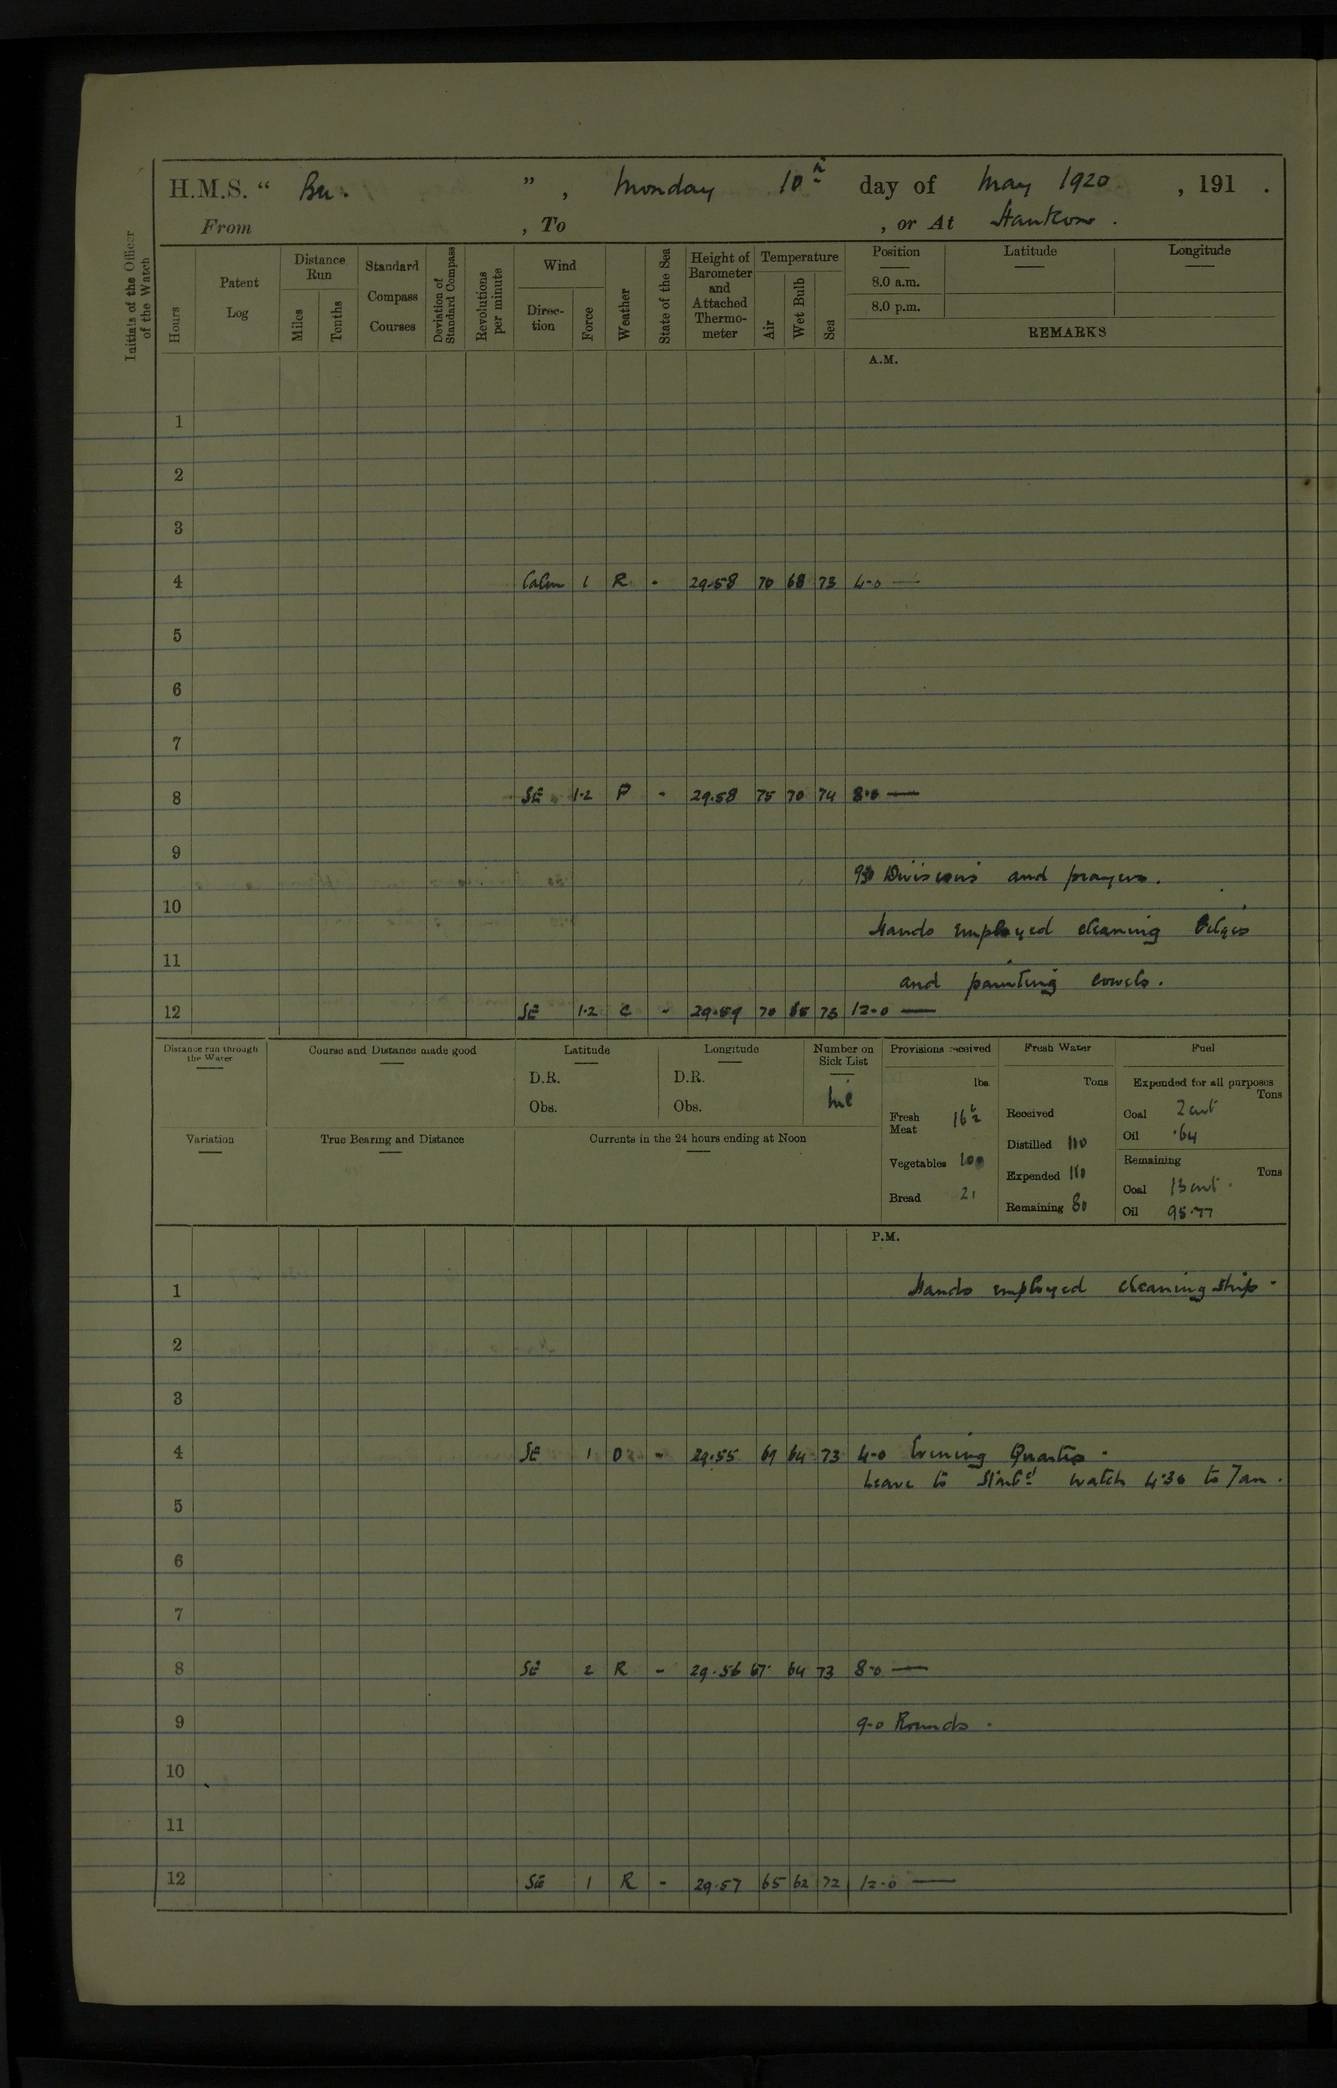 H.M.S. “ Bee. ” , Monday 10th day of May 1920 , 191 .
From , To , or At Hankow .
Initials of the Officer of the Watch
Hours
Patent Log
Distance Run
Miles
Tenths
Standard Compass Courses
Deviation of Standard Compass
Revolutions per minute
Wind
Direc-tion
Force
Weather
State of the Sea
Height of Barometer and Attached Thermo-meter
Temperature
Air
Wet Bulb
Sea
Position
8.0 a.m.
8.0 p.m.
Latitude
Longitude
REMARKS
A.M.
1
2
3
4 Calm 1 R - 29.58 70 68 73 4-0 —
5
6
7
8 SE 1.2 P - 29.58 75 70 74 8.0 —
9
930 Divisions and prayers.
10
Hands employed cleaning bilges
11
and painting cowls.
12 SE 1.2 C - 29.59 70 65 73 12-0 —
Distance run through the Water
Course and Distance made good
Latitude
D.R.
Obs.
Longitude
D.R.
Obs.
Number on Sick List
nil
Provisions received
lbs.
Fresh Meat 16½
Vegetables 100
Bread 21
Fresh Water
Tons
Received
Distilled 110
Expended 110
Remaining 80
Fuel
Expended for all purposes
Tons
Coal 2 cwt
Oil .64
Remaining
Tons
Coal 13 cwt.
Oil 95.77
Variation
True Bearing and Distance
Currents in the 24 hours ending at Noon
P.M.
1 Hands employed cleaning ship.
2
3
4 SE 1 O - 29.55 69 64 73 4-0 Evening Quarters.
Leave to Starbd watch 4.30 to 7am.
5
6
7
8 SE 2 R - 29.56 67 64 73 8-0 —
9 9-0 Rounds.
10
11
12 SE 1 R - 29.57 65 62 72 12-0 —